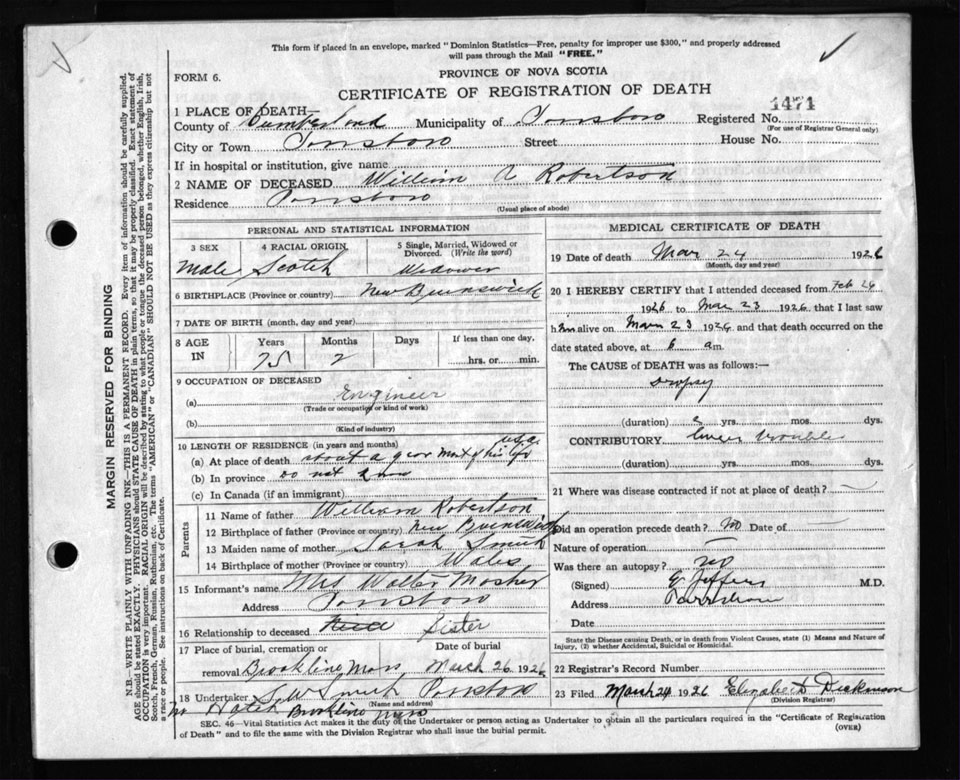 This form if placed in an envelope, marked "Dominion Statistics—Free, penalty for improper use $300," and properly addressed
will pass through the Mail "FREE."
FORM 6.
PROVINCE OF NOVA SCOTIA
CERTIFICATE OF REGISTRATION OF DEATH
1471
1 PLACE OF DEATH—
County of Cumberland Municipality of Parrsboro Registered No.
(For use of Registrar General only)
City or Town Parrsboro Street House No.
If in hospital or institution, give name
2 NAME OF DECEASED William A Robertson
Residence Parrsboro
(Usual place of abode)
PERSONAL AND STATISTICAL INFORMATION
3 SEX 4 RACIAL ORIGIN 5 Single, Married, Widowed or Divorced. (Write the word)
Male Scotch Widower
6 BIRTHPLACE (Province or country) New Brunswick
7 DATE OF BIRTH (month, day and year)
8 AGE IN Years Months Days If less than one day,
75 2 hrs. or min.
9 OCCUPATION OF DECEASED
(a) Engineer
(Trade or occupation or kind of work)
(b)
(Kind of industry)
10 LENGTH OF RESIDENCE (in years and months) USA
(a) At place of death about a year most of his life
(b) In province do not know
(c) In Canada (if an immigrant)
Parents
11 Name of father William Robertson
12 Birthplace of father (Province or country) New Brunswick
13 Maiden name of mother Sarah Smith
14 Birthplace of mother (Province or country) Wales
15 Informant's name Mrs Walter Mosher
Address Parrsboro
16 Relationship to deceased Sister
17 Place of burial, cremation or removal Date of burial
Brookline Mass March 26 1926
18 Undertaker Smith Parrsboro
(Name and address)
Hatch Brookline Mass
MEDICAL CERTIFICATE OF DEATH
19 Date of death Mar 24 1926
(Month, day and year)
20 I HEREBY CERTIFY that I attended deceased from Feb 26
1926 to Mar 23 1926 that I last saw
him alive on Mar 23 1926 and that death occurred on the
date stated above, at 6 am.
The CAUSE OF DEATH was as follows:—
Dropsy
(duration) yrs. mos. dys.
CONTRIBUTORY liver trouble
(duration) yrs. mos. dys.
21 Where was disease contracted if not at place of death?
Did an operation precede death? No Date of
Nature of operation —
Was there an autopsy? no
(Signed) M.D.
Address Parrsboro
Date
State the Disease causing Death, or in death from Violent Causes, state (1) Means and Nature of Injury, (2) whether Accidental, Suicidal or Homicidal.
22 Registrar's Record Number
23 Filed March 24 1926 Elizabeth Dickinson
(Division Registrar)
SEC. 46—Vital Statistics Act makes it the duty of the Undertaker or person acting as Undertaker to obtain all the particulars required in the "Certificate of Registration
of Death" and to file the same with the Division Registrar who shall issue the burial permit.
(OVER)
MARGIN RESERVED FOR BINDING
N.B.—WRITE PLAINLY WITH UNFADING INK—THIS IS A PERMANENT RECORD. Every item of information should be carefully supplied.
AGE should be stated EXACTLY. PHYSICIANS should STATE CAUSE OF DEATH in plain terms, so that it may be properly classified. Exact statement of
OCCUPATION is very important. RACIAL ORIGIN will be described by stating to what people or tongue the deceased person belonged, whether English, Irish,
Scotch, French, German, Russian, Ruthenian, etc. The terms "AMERICAN" or "CANADIAN" SHOULD NOT BE USED as they express citizenship but not
a race or people. See instructions on back of Certificate.